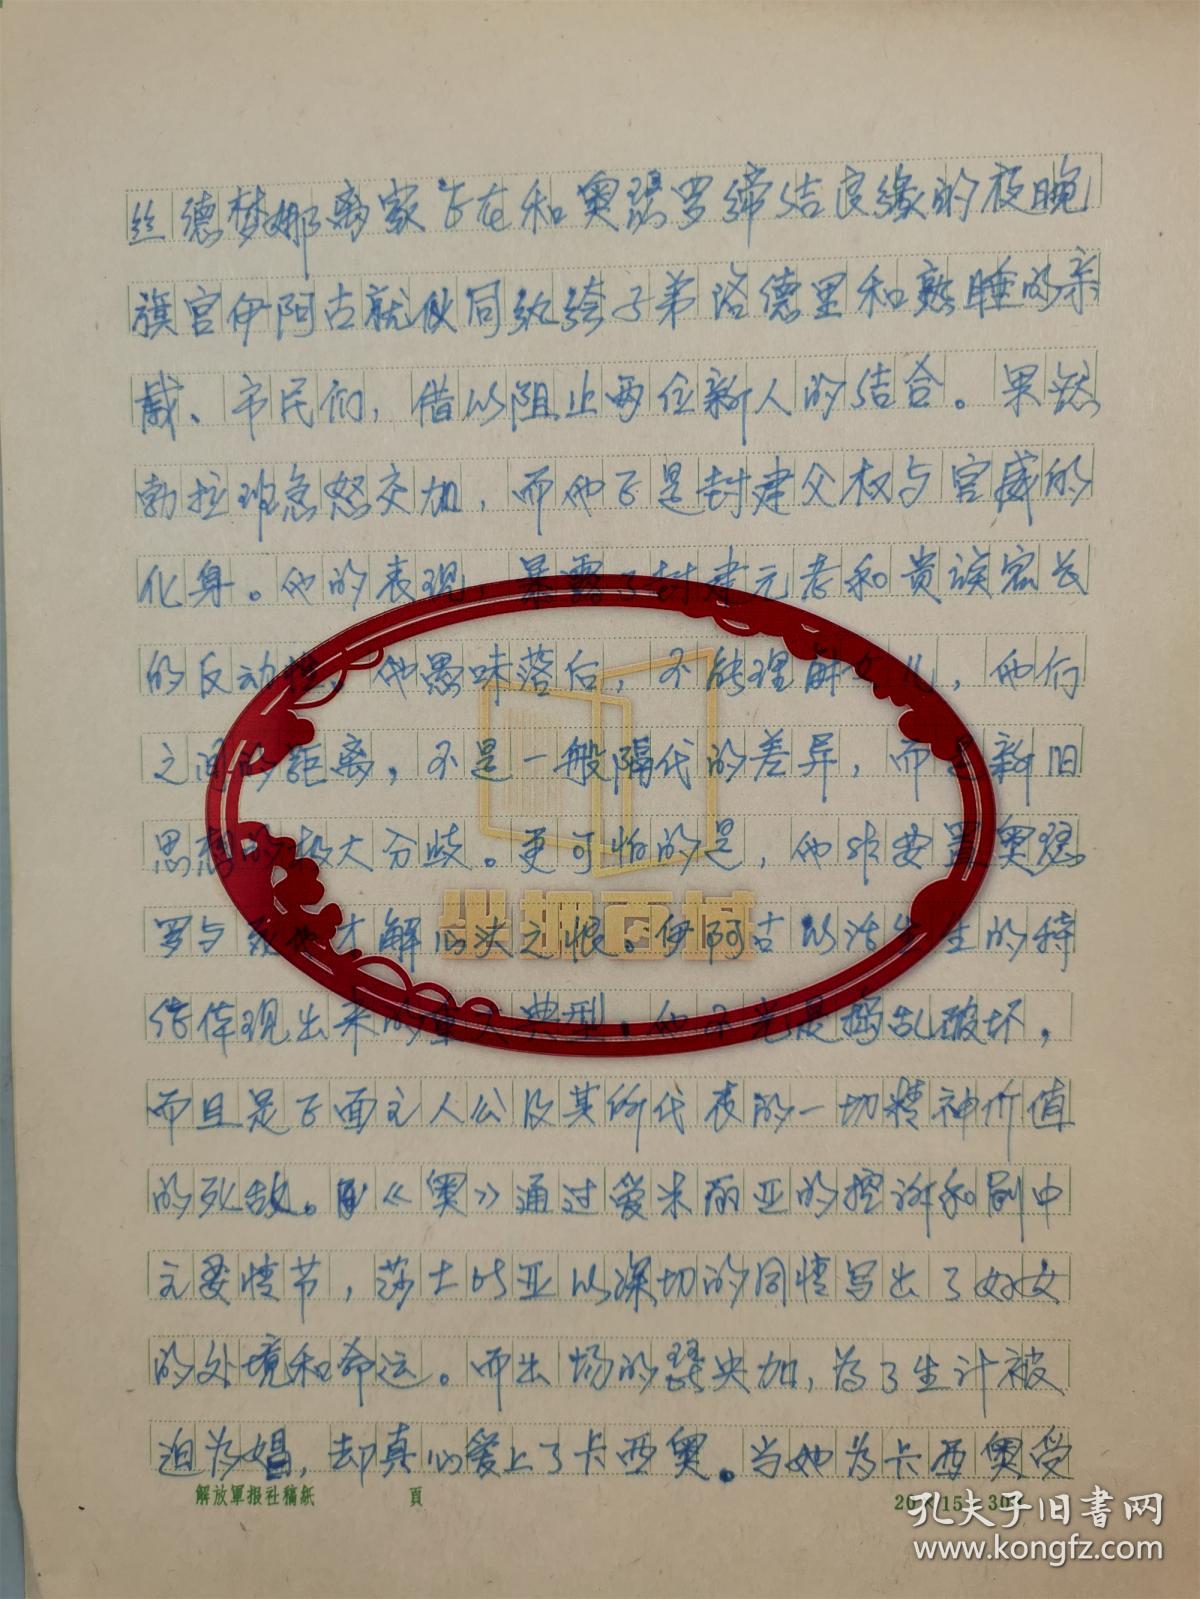 丝德梦娜离家正在和奥瑟罗缔结良缘的夜晚
旗官伊阿古就伙同纨绔子弟洛德里和熟睡的亲
戚、市民们，借以阻止两位新人的结合。果然
勃拉班忽怒交加，而他正是封建父权与官威的
化身。他的表现，暴露了封建元老和贵族家长
的反动性，他愚味落后，不能理解女儿，他们
之间的距离，不是一般隔代的差异，而是新旧
思想的极大分歧。更可怕的是，他非要置奥瑟
罗与死地才解心头之恨。伊阿古以活生生的特
体现出来的重大典型。他不光是捣乱破坏，
而且是正面主人公及其所代表的一切精神价值
的死敌。《奥》通过爱米丽亚的控诉和剧中
主要情节，莎士比亚以深切的同情写出了妇女
的处境和命运。而出场的央加，为了生计被
迫为娼，却真心爱上了卡西奥。当她为卡西奥受
解放軍报社稿紙 頁 20×15＝300
坐拥百城
孔夫子旧书网
www.kongfz.com